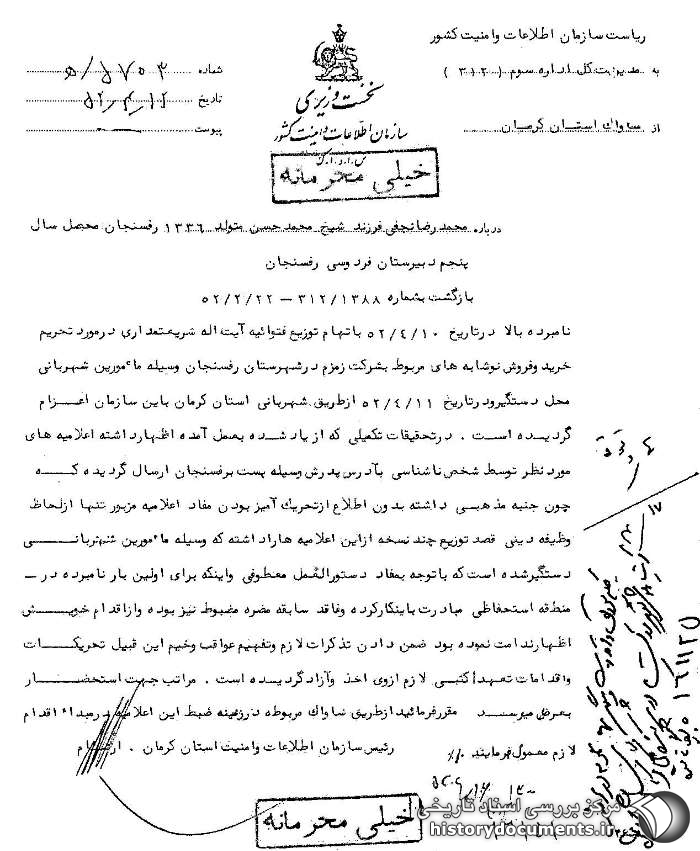 ریاست سازمان اطلاعات و امنیت کشور
به مدیریت کل اداره سوم (۳۱۲)
از ساواک استان کرمان
نخست وزیری
سازمان اطلاعات و امنیت کشور
س.ا.و.ا.ک
خیلی محرمانه
شماره
تاریخ
پیوست
درباره محمد رضا نجفی فرزند شیخ محمد حسن متولد ۱۳۳۶ رفسنجان محصل سال
پنجم دبیرستان فردوسی رفسنجان
بازگشت بشماره ۳۱۲/۱۳۸۸ – ۵۲/۲/۲۲
نامبرده بالا در تاریخ ۵۲/۴/۱۰ باتهام توزیع فتوائیه آیت اله شریعتمداری در مورد تحریم
خرید و فروش نوشابه های مربوط بشرکت زمزم در شهرستان رفسنجان وسیله مأمورین شهربانی
محل دستگیر و در تاریخ ۵۲/۴/۱۱ از طریق شهربانی استان کرمان باین سازمان اعزام
گردیده است . در تحقیقات تکمیلی که از یاد شده بعمل آمده اظهار داشته اعلامیه های
مورد نظر توسط شخص ناشناسی بآدرس پدرش وسیله پست برفسنجان ارسال گردیده که
چون جنبه مذهبی داشته بدون اطلاع از تحریک آمیز بودن مفاد اعلامیه مزبور تنها از لحاظ
وظیفه دینی قصد توزیع چند نسخه از این اعلامیه ها را داشته که وسیله مأمورین شهربانی
دستگیر شده است که با توجه بمفاد دستورالعمل معطوفی و اینکه برای اولین بار نامبرده در –
منطقه استحفاظی مبادرت باینکار کرده و فاقد سابقه مضره مضبوط نیز بوده و از اقدام خویش
اظهار ندامت نموده بود ضمن دادن تذکرات لازم و تفهیم عواقب وخیم این قبیل تحریکات
و اقدامات تعهد کتبی لازم از وی اخذ و آزاد گردیده است . مراتب جهت استحضار
بعرض میرسد مقرر فرمائید از طریق ساواک مربوطه در زمینه ضبط این اعلامیه در مبداء اقدام
لازم معمول فرمایند
رئیس سازمان اطلاعات و امنیت استان کرمان .
خیلی محرمانه
مرکز بررسی اسناد تاریخی
historydocuments.ir